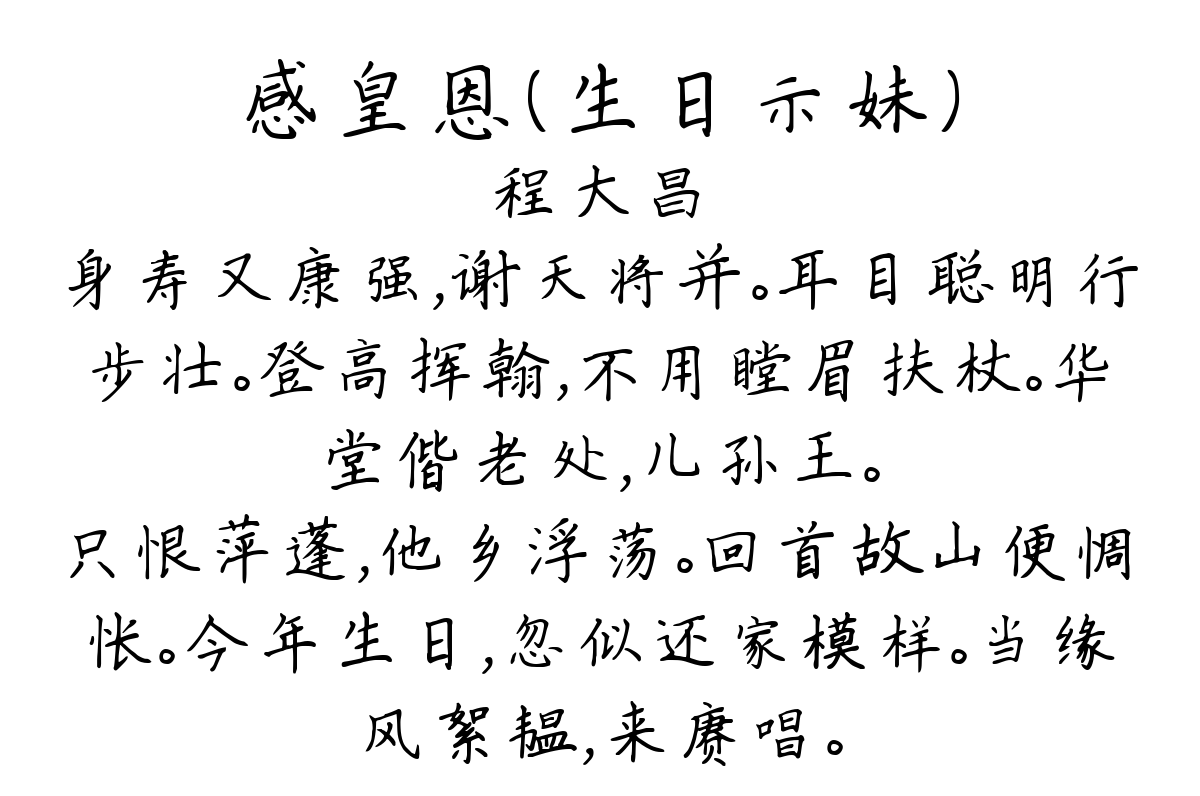 感皇恩(生日示妹)
程大昌
身寿又康强,谢天将并。耳目聪明行
步壮。登高挥翰,不用瞠眉扶杖。华
堂偕老处,儿孙王。
只恨萍蓬,他乡浮荡。回首故山便惆
怅。今年生日,忽似还家模样。当缘
风絮韫,来赓唱。